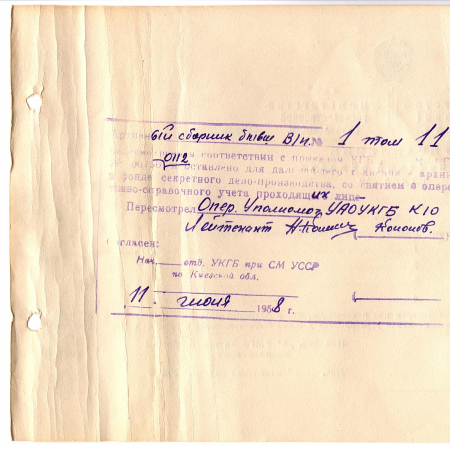 Архивн ый сборник бывш. В/П. № 1 том 11
соответствии с приказом КГБ
оставлено для дальнейшего хранения в архи
фонде секретного дело-производства, со снятием с опера
справочного учета проходящих лиц
Пересмотрел Опер. Уполномоч УАОУКГБ КО
Лейтенант (Кононов.
Согласен:
Нач. отд. УКГБ при СМ УССР
по Киевской обл.
"11. июня 1958 г.